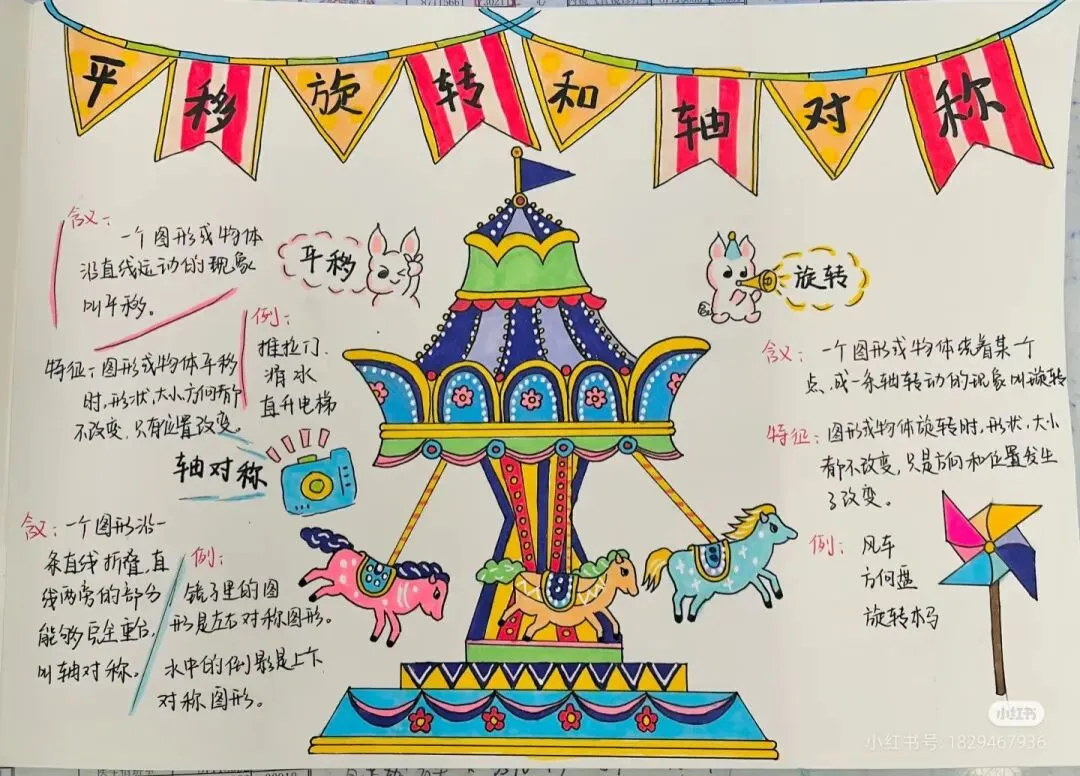 平移旋转和轴对称
平移
含义:一个图形或物体
沿直线运动的现象
叫平移。
特征:图形或物体平移
时,形状,大小方向都
不改变,只有位置改变。
例:
推拉门、
滑冰
直升电梯
旋转
含义:一个图形或物体绕着某个
点,或一条轴转动的现象叫旋转
特征:图形或物体旋转时,形状,大小
都不改变,只是方向和位置发生
了改变。
例:风车
方向盘
旋转木马
轴对称
含义:一个图形沿一
条直线折叠,直
线两旁的部分
能够完全重合,
叫轴对称。
例:
镜子里的图
形是左右对称图形。
水中的倒影是上下
对称图形。
小红书
小红书号:1829467936